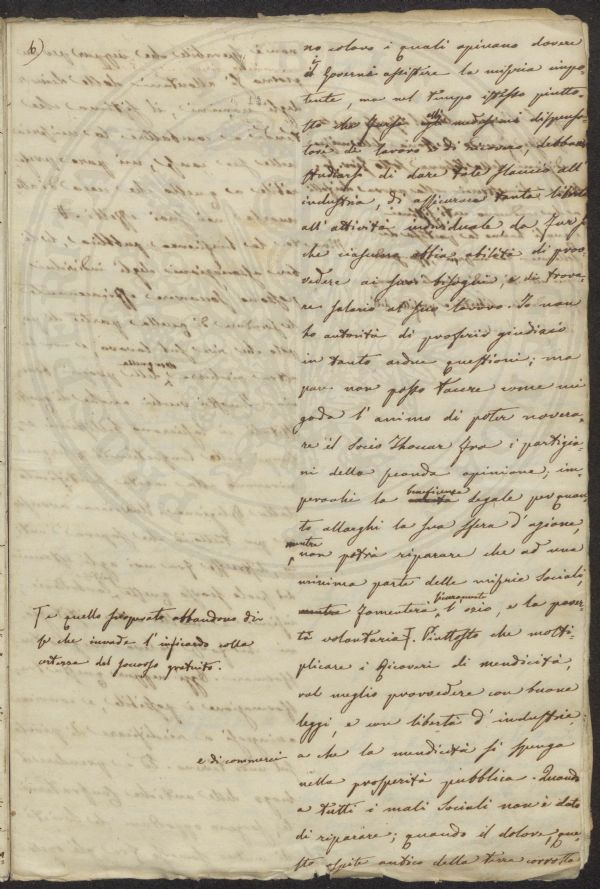 6)
no coloro i quali opinano dovere
il Governo assistere la miseria impo-
tente, ma nel tempo istesso piutto-
sto che farsi alle medesimi dispensa-
tore di lavoro e di ricovero, debbano
studiarsi di dare tale slancio all'
industria, di assicurare tanta libertà
all'attività individuale da far sì
che ciascuno abbia abilità di prov-
vedere ai suoi bisogni, e di trova-
re salario al suo lavoro. Io non
ho autorità di proferir giudizio
in tanto ardue questioni; ma
pure non posso tacere come mi
goda l'animo di poter novera-
re il Socio Thouar fra i partigia-
ni della seconda opinione; im-
perocchè la beneficenza legale per quan-
to allarghi la sua sfera d'azione,
mentre non potrà riparare che ad una
minima parte delle miserie sociali,
fomenterà l'ozio, e la pover-
tà volontaria T. Piuttosto che molti-
plicare i Ricoveri di mendicità,
val meglio provvedere con buone
leggi, e con libertà d'industria
a che la mendicità si spenga
nella prosperità pubblica. Quando
a tutti i mali sociali non è dato
di riparare; quando il dolore, que-
sto ospite antico della terra corrotta
T e quello sciagurato abbandono di
se che invade l'infingardo colla
certezza del soccorso gratuito.
e di commercio